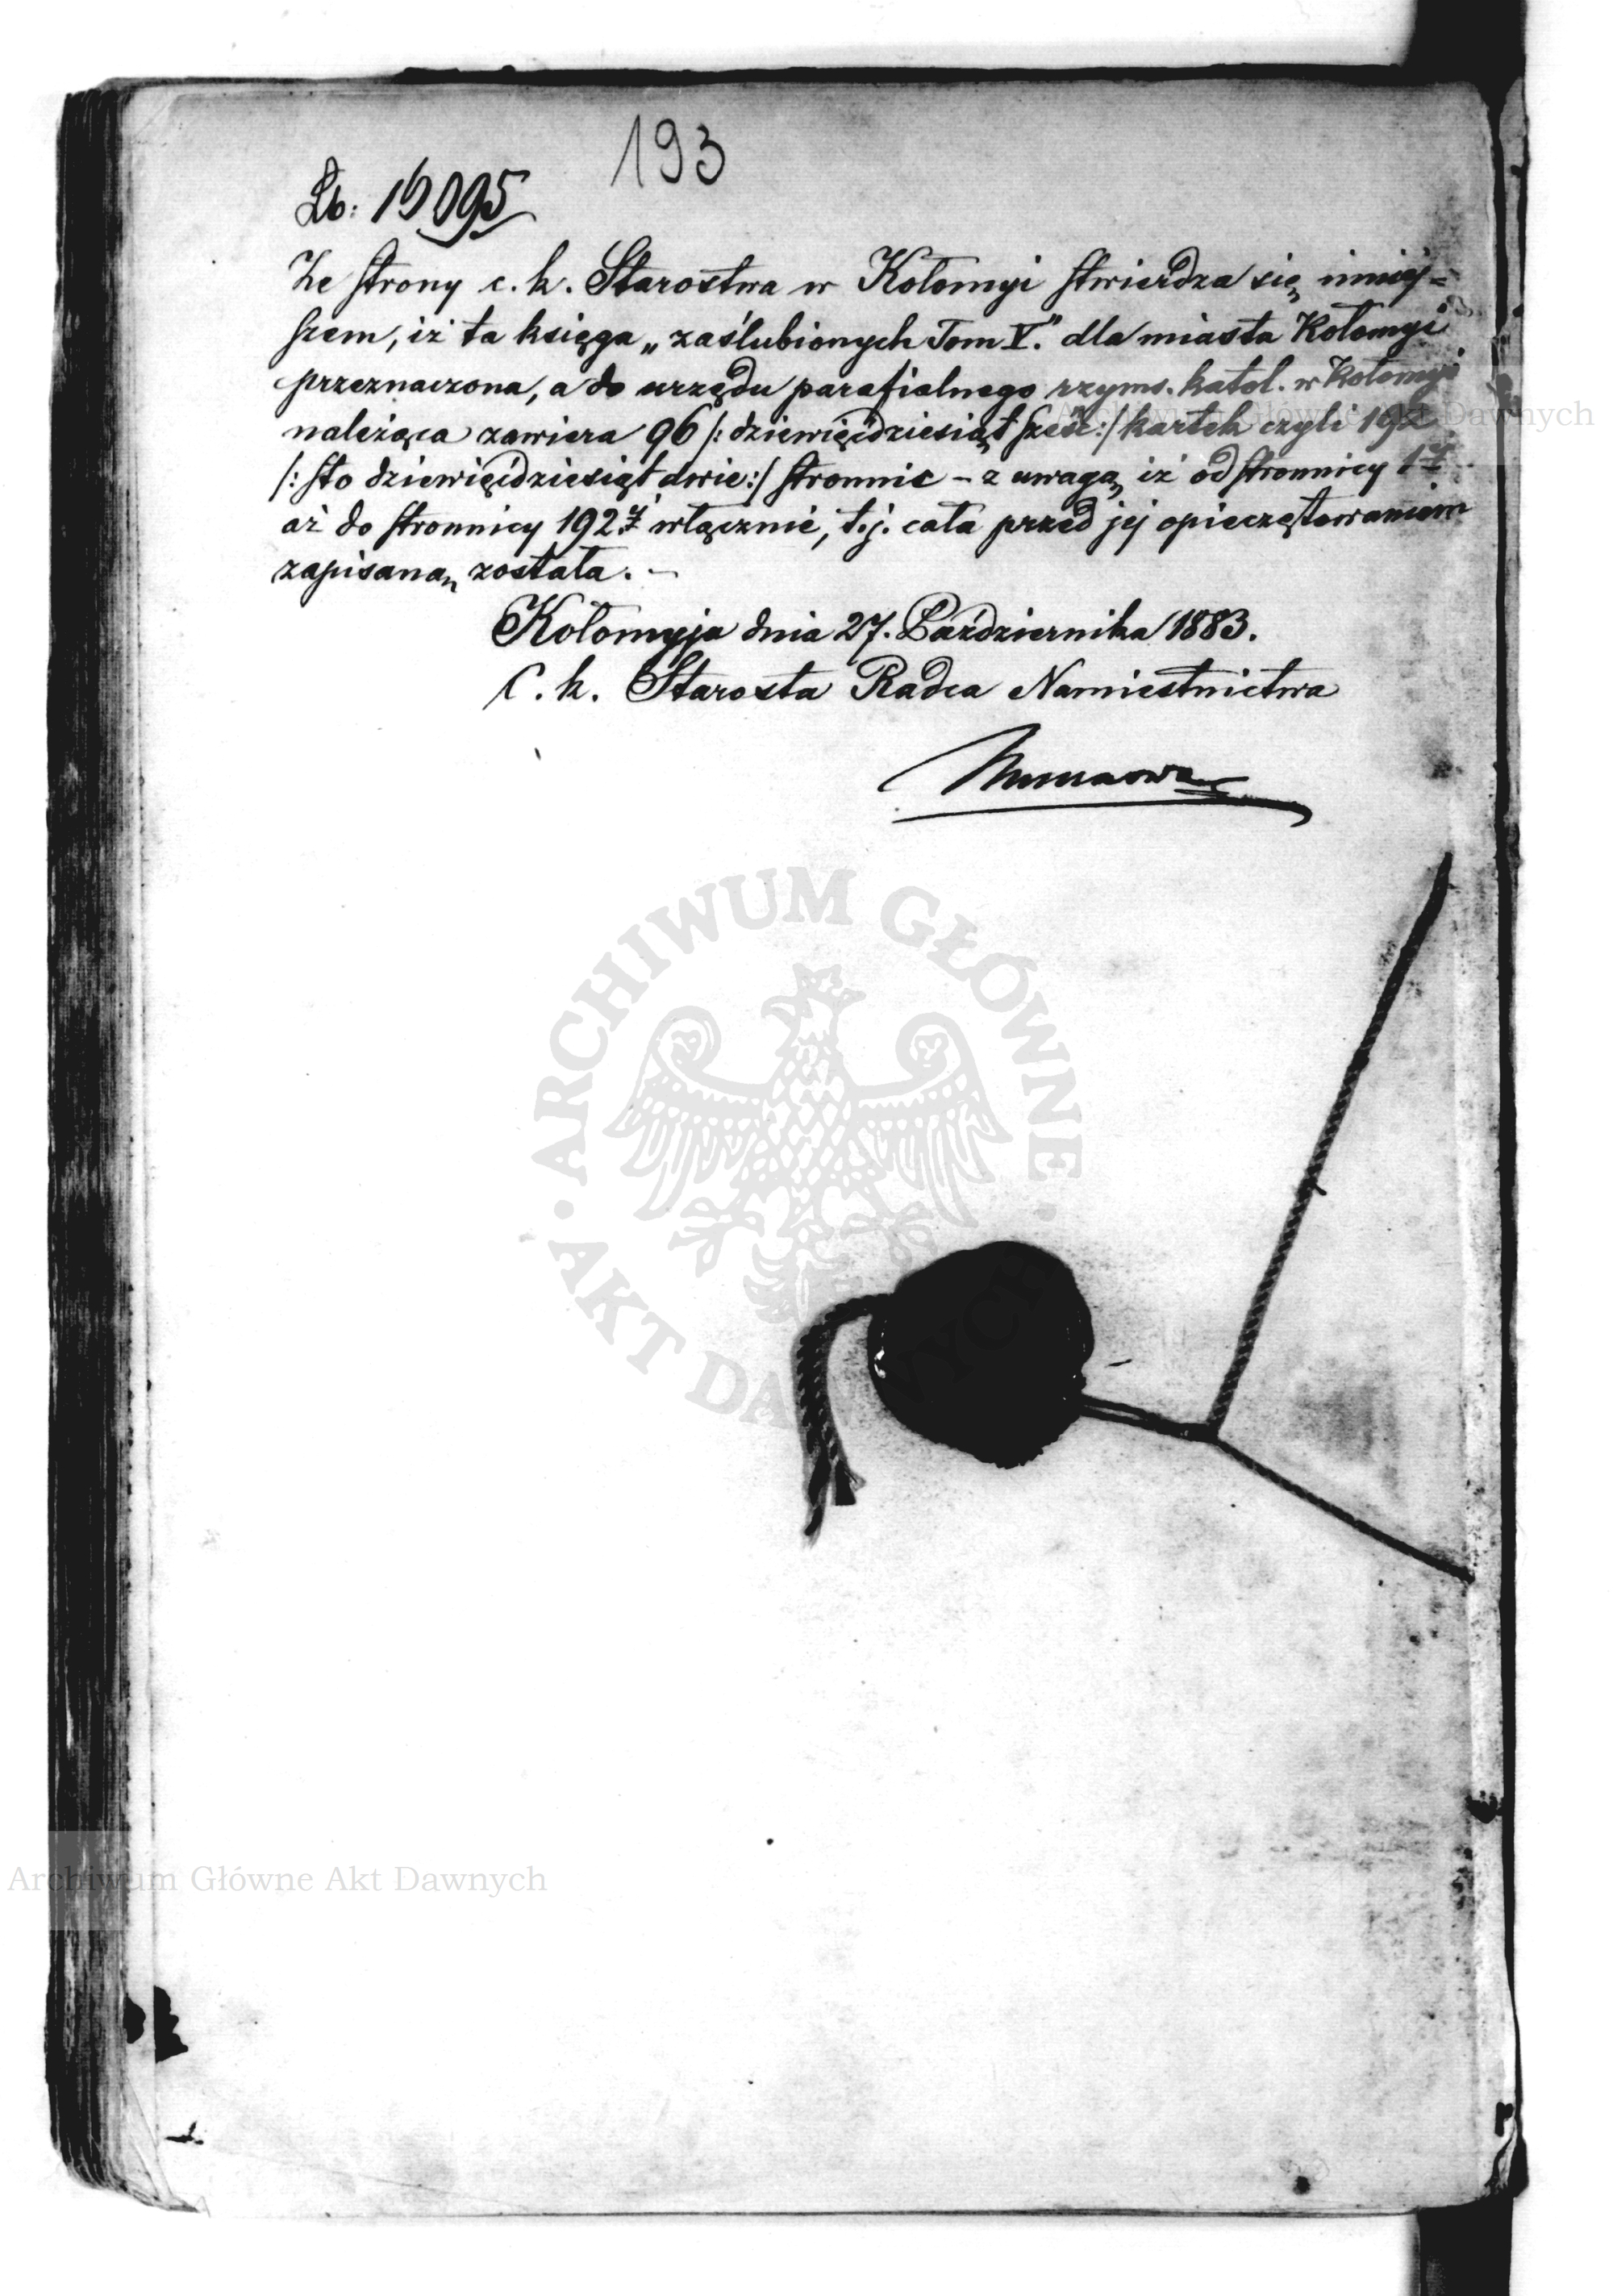 193
Lb: 19095
Ze strony c. k. Starostwa w Kołomyi stwierdza się niniej=
szem, iż ta księga „zaślubionych Tom V." dla miasta Kołomyi
przeznaczona, a do urzędu parafialnego rzyms. katol. w Kołomyi
należąca zawiera 96 /: dziewięćdziesiąt sześć :/ kartek czyli 192
/: sto dziewięćdziesiąt dwie :/ stronnic – z uwagą, iż od stronnicy 1ej
aż do stronnicy 192ej włącznie, t. j. cała przed jej opieczętowaniem
zapisaną została. –
Kołomyja dnia 27. Października 1883.
C. k. Starosta Radca Namiestnictwa
ARCHIWUM GŁÓWNE · AKT DAWNYCH ·
Archiwum Główne Akt Dawnych
Archiwum Główne Akt Dawnych